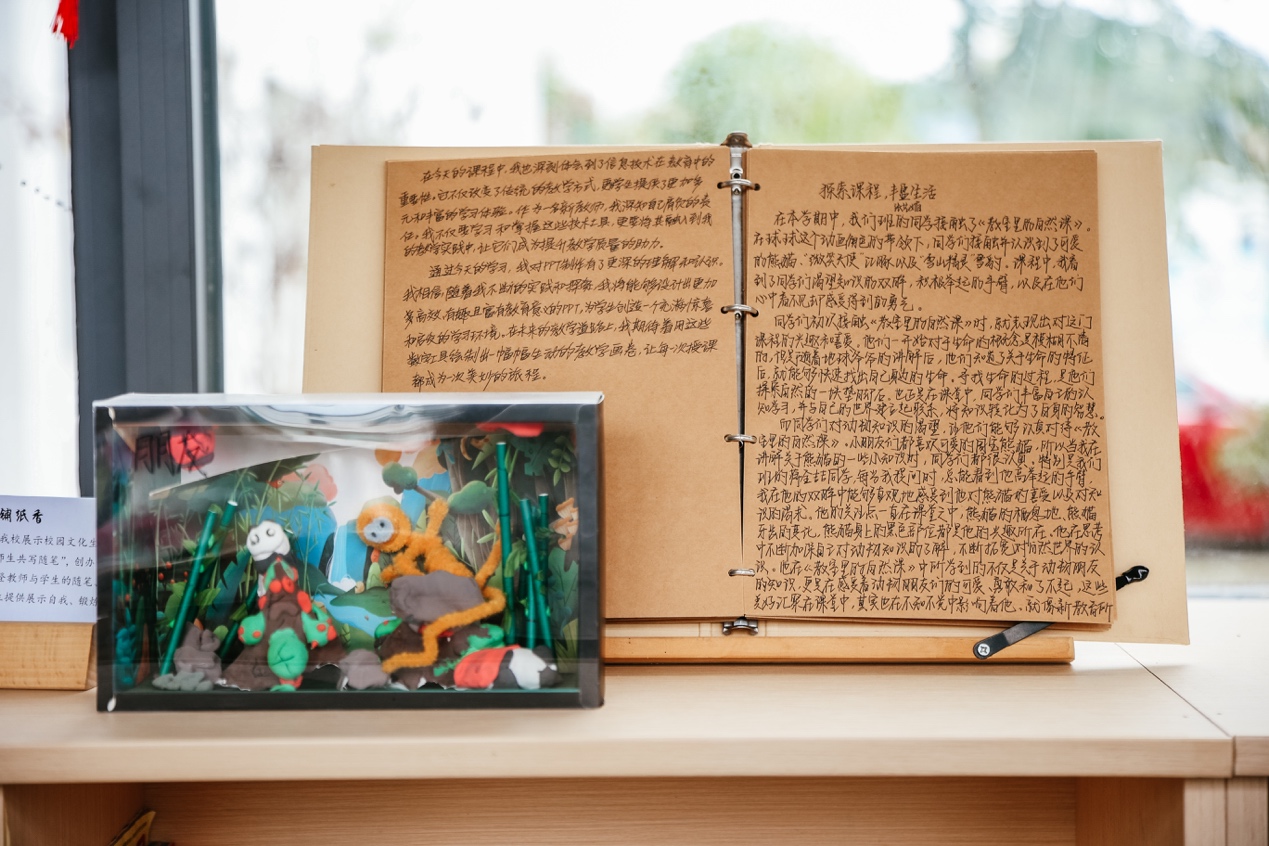 朋友
铺纸香
我校展示校园文化生
师生共写随笔”,创办
教师与学生的随笔
提供展示自我、锻炼
在今天的课程中,我也深刻体会到了信息技术在教育中的
重要性。它不仅改变了传统的教学方式,更为学生提供了更加多
元和丰富的学习体验。作为一名新教师,我深知自己肩负的责
任。我不仅要学习和掌握这些技术工具,更要将其融入到我
的教学实践中,让它们成为提升教学质量的助力。
通过今天的学习,我对PPT制作有了更深的理解和认识。
我相信,随着我不断的实践和探索,我将能够设计出更加
高效、有趣且富有教育意义的PPT,为学生创造一个充满惊喜
和启发的学习环境。在未来的教学道路上,我期待着用这些
数字工具绘制出一幅幅生动的教学画卷,让每一次授课
都成为一次美妙的旅程。
探索课程,丰盈生活
在本学期中,我们班的同学接触了《教室里的自然课》。
在球球这个动画角色的带领下,同学们接触并认识到了可爱
的熊猫、“微笑天使”江豚、以及“雪山精灵”雪豹。课程中,我看
到了同学们渴望知识的双眼,积极举起的手臂,以及在他们
心中看不见却感受得到的勇气。
同学们初次接触《教室里的自然课》时,就表现出对这门
课程的兴趣和喜爱。他们一开始对于生命的概念是模糊不清
的,但是随着地球爷爷的讲解后,他们知道了关于生命的特征
后,就能够快速找出自己身边的生命。寻找生命的过程,是他们
探索自然的一块垫脚石。也正是在课堂中,同学们丰富自己的认
知学习,并与自己的世界建立起联系,将知识转化为了自身的智慧。
同学们对动物知识的渴望,让他们能够认真对待《教
室里的自然课》。小朋友们都喜欢可爱的国宝熊猫,所以当我在
讲解关于熊猫的一些小知识时,同学们都很认真,特别是我们
班的同学,每当我提问时,总能看到他高举起的手臂。
我在他的双眼中能够直观地感受到他对熊猫的喜爱以及对知
识的渴求。他的关注点一直在课堂之中,熊猫的栖息地、熊猫
牙齿的变化、熊猫身上的黑色部位都是他的兴趣所在。他在思考
中不断加深自己对动物知识的了解,不断拓宽对自然世界的认
识。他在《教室里的自然课》中所学到的不仅是关于动物朋友
的知识,更是在感受着动物朋友们的可爱、勇敢和了不起,这些
美好汇聚在课堂中,其实也在不知不觉中影响着他。就像新教育所